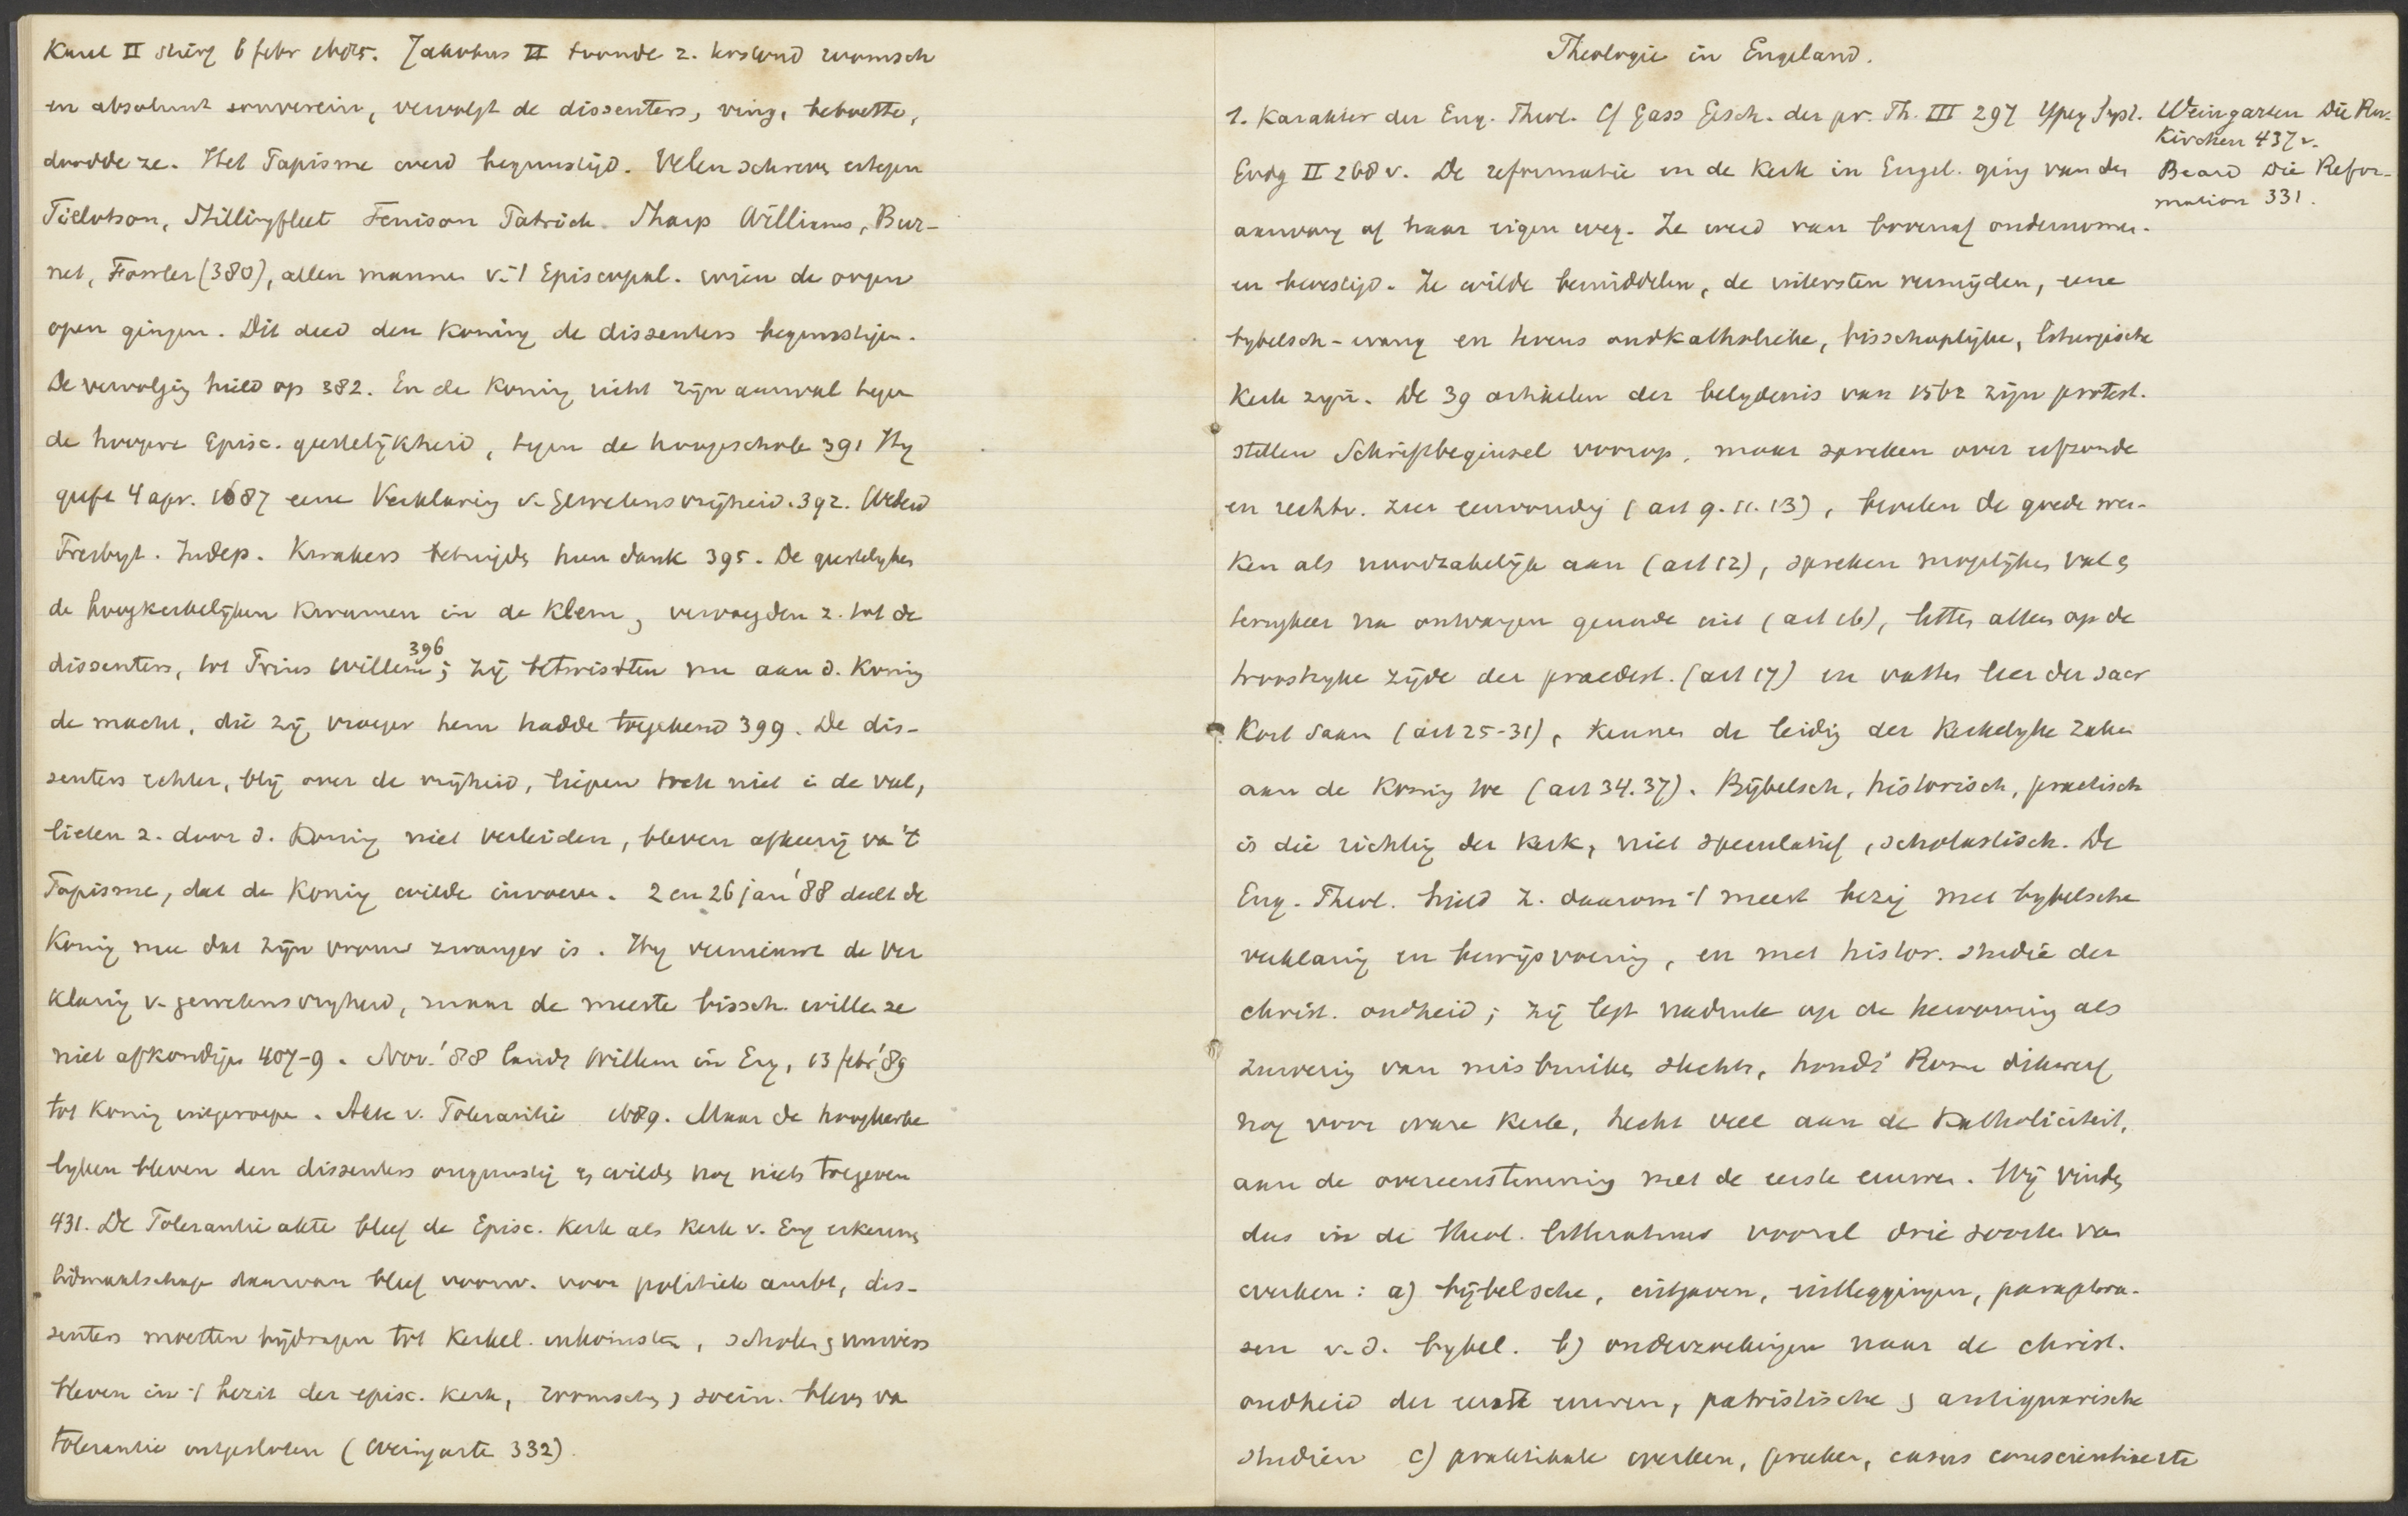 Karel II stierf 6 febr 1685. Jakobus II toonde z. beslond roomsch
en absoluut souverein, vervolgt de dissenters, ving, beboette,
doodde ze. Het Papisme werd begunstigd. Velen schreven ertegen
Tillotson, Stillingfleet Tenison Patrick. Sharp Williams, Bur-
net, Fowler (380), allen mannen v. 't Episcopal. wien de oogen
open gingen. Dit deed den Koning de dissenters begunstigen.
De vervolging hield op 382. En de Koning richt zijn aanval tegen
de hoogere Episc. geestelijkheid, tegen de hoogeschole 391 Hy
geeft 4 apr. 1687 eene Verklaring v. Gewetensvrijheid. 392.
Presbyt. Indep. Kwakers betuigde hun dank 395. De geestelyken
de hoogkerkelijken kwamen in de klem, vervoegden z. tot de
dissenters, tot Prins Willem 396; zij betwistten nu aan d. Koning
de macht, die zij vroeger hem hadde toegekend 399. De dis-
senters echter, blij over de vrijheid, liepen toch niet in de val,
lieten z. door d. Koning niet verleiden, bleven afkeerig va't
Papisme, dat de Koning wilde invoeren. 2 en 26 jan '88 deelt de
Koning mee dat zijn vrouw zwanger is. Hy vernieuwt de Ver
klaring v. gewetensvryheid, maar de meeste bissch. willen ze
niet afkondigen 407-9. Nov. '88 landt Willem in Eng, 13 febr '89
tot Koning uitgeroepen. Akte v. Tolerantie 1689. Maar de hoogkerke
lyken bleven den dissenters ongunstig en wilden nog niets toegeven
431. De Tolerantieakte bleef de Episc. Kerk als Kerk v. Eng erkennen
lidmaatschap daarvan bleef voorw. voor politiek ambt, dis-
senters moesten bijdragen tot kerkel. inkomsten, scholen en univers
bleven in 't bezit der episc. Kerk, roomschen en socin. bleven va
tolerantie uitgesloten (Weingarte 332).
Theologie in Engeland.
1. Karakter der Eng. Theol. Cf Gass Gesch. der pr. Th. III 297 Ypey Syst.
Godg II 268 v. De reformatie en de Kerk in Engel. ging van den
aanvang af haar eigen weg. Ze werd van bovenaf ondernomen
en bevestigd. Ze wilde bemiddelen, de uitersten vermijden, eene
bybelsch-evang en tevens oudkatholieke, bisschoplijke, liturgische
Kerk zyn. De 39 artikelen der belydenis van 1562 zijn protest.
stellen Schriftbeginsel voorop, maar spreken over erfzonde
en rechtv. zeer eenvoudig (art 9. 11. 13), bevelen de goede wer-
ken als noodzakelijk aan (art 12), spreken mogelijken val en
terugkeer na ontvangen genade uit (art 16), letten alleen op de
troostryke zijde der praedest. (art 17) en vatten leer der sacr
kort saam (art 25-31), kennen de leiding der Kerkelyke zaken
aan de Koning toe (art 34. 37). Bijbelsch, historisch, practisch
is die richting der Kerk, niet speculatief, scholastisch. De
Eng. Theol. hield z. daarom 't meest bezig met bybelsche
verklaring en bewijsvoering, en met histor. studie der
christ. oudheid; zij legt nadruk op de hervorming als
zuivering van misbruiken slechts, houdt Rome dikwerf
nog voor ware Kerk, hecht veel aan de Katholiciteit,
aan de overeenstemming met de eerste eeuwen. Wij vinden
dus in de theol. litteratuur vooral drie soorten van
werken: a) bijbelsche, uitgaven, uitleggingen, paraphra-
sen v. d. bybel. b) onderzoekingen naar de christ.
oudheid der eerste eeuwen, patristische en antiquarische
studien c) praktikale werken, preeken, casus conscientiae etc
Weingarten Die Rev.
Kirchen 437 v.
Beard Die Refor-
mation 331.